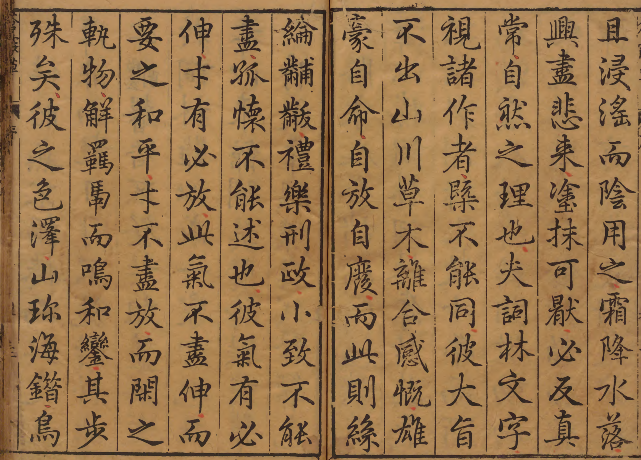 且浸淫而陰用之霜降水落
興盡悲来塗抹可厭必反真
常自然之理也夫詞林文字
視諸作者槩不能同彼大旨
不出山川草木離合感慨雄
豪自命自放自廢而此則絲
綸黼黻禮樂刑政小致不能
盡孤懐不能述也彼氣有必
伸才有必放此氣不盡伸而
要之和平才不盡放而閑之
軌物解羈馬而鳴和鑾其步
殊矣彼之色澤山珎海錯烏